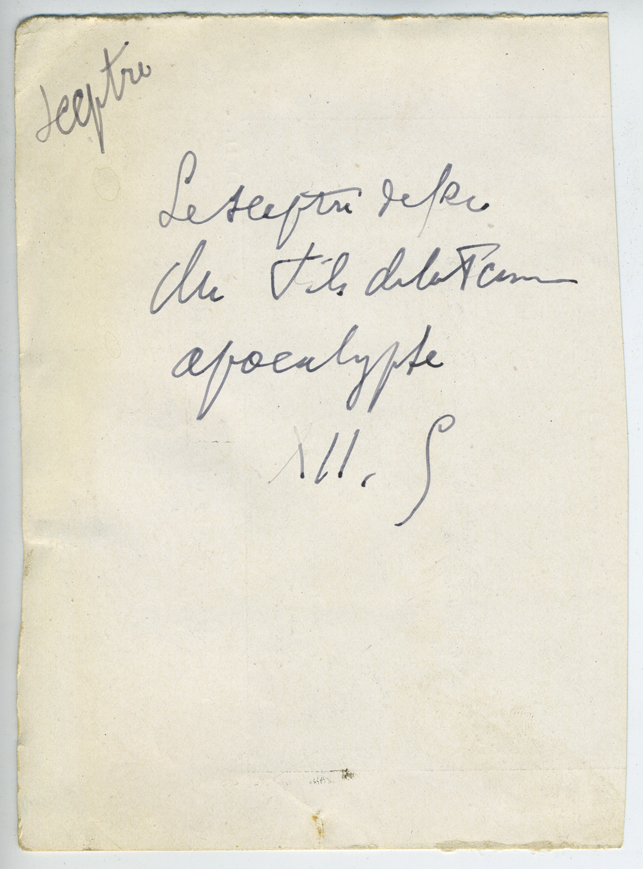 sceptre
Le sceptre de fer
du Fils de la Femme
apocalypse
XII. 5